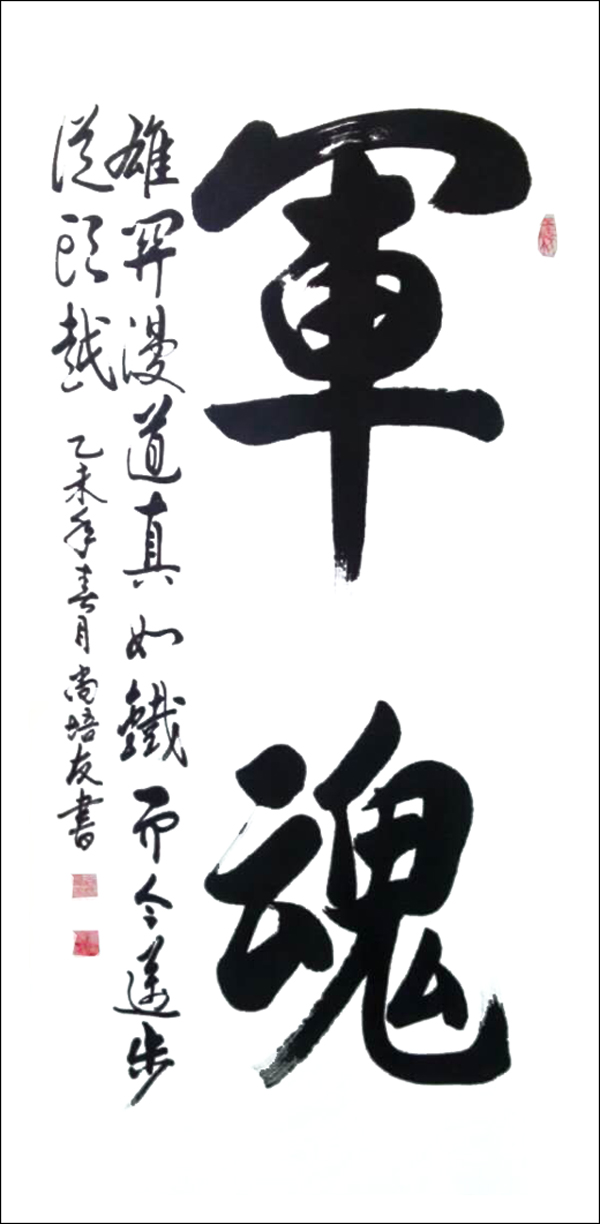 軍魂
雄關漫道真如鐵而今邁步
從頭越
乙未年春月尚培友書